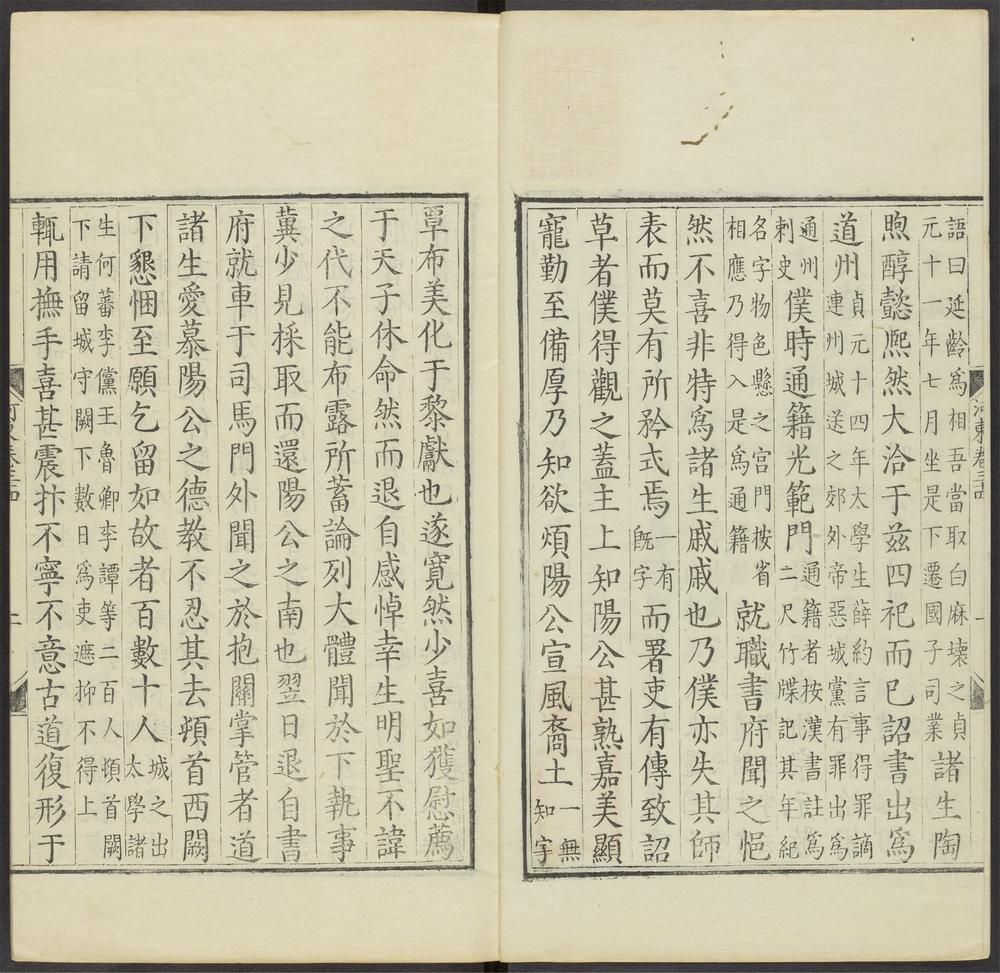 語曰延齡爲相吾當取白麻壞之貞
元十一年七月坐是下遷國子司業
諸生陶
煦醇懿熈然大洽于兹四祀而已詔書出爲
道州
貞元十四年太學生薛約言事得罪謫
連州城送之郊外帝惡城黨有罪出爲
通州
刺史
僕時通籍光範門
通籍者按漢書註爲
二尺竹牒記其年紀
名字物色懸之宮門按省
相應乃得入是爲通籍
就職書府聞之悒
然不喜非特爲諸生戚戚也乃僕亦失其師
表而莫有所矜式焉
一有
旣字
而署吏有傳致詔
草者僕得觀之蓋主上知陽公甚熟嘉美顯
寵勤至備厚乃知欲煩陽公宣風裔土
一無
知字
覃布美化于黎獻也遂寬然少喜如獲慰薦
于天子休命然而退自感悼幸生明聖不諱
之代不能布露所蓄論列大體聞於下執事
冀少見採取而還陽公之南也翌日退自書
府就車于司馬門外聞之於抱關掌管者道
諸生愛慕陽公之德教不忍其去頓首西闕
下懇悃至願乞留如故者百數十人
城之出
太學諸
生何蕃李儻王魯卿李譚等二百人頓首闕
下請留城守闕下數日爲吏遮抑不得上
輒用撫手喜甚震抃不寧不意古道復形于
河東卷三十四
一